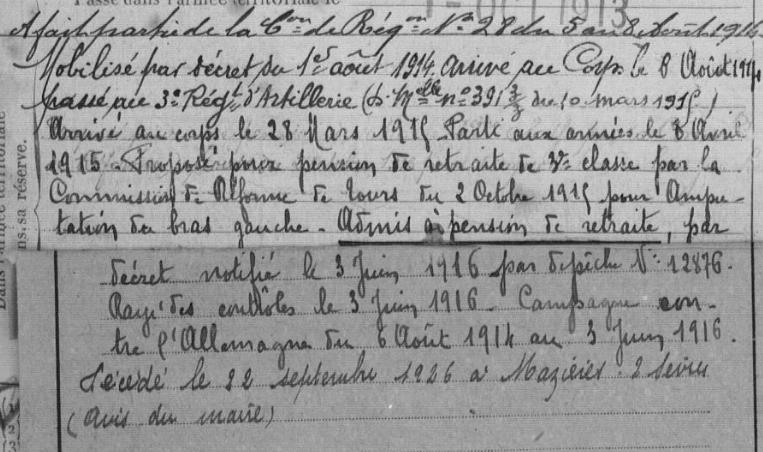 Passé dans l'armée territoriale le
1 - OCT 1913
A fait partie de la Con de Régon No 28 du 5 au 8 Août 1914.
Mobilisé par décret du 1er août 1914. Arrivé au Corps le 8 Août 1914
passé au 3e Régt d'Artillerie (D. Mlle no 391 3/3 du 10 mars 1915)
Arrivé au corps le 28 Mars 1915 Parti aux armées le 8 Avril
1915. Proposé pour pension de retraite de classe par la
Commission de Réforme de Tours du 2 Octbre 1915 pour Ampu-
tation du bras gauche - Admis à pension de retraite, par
décret notifié le 3 Juin 1916 par dépêche No 12876.
Rayé des contrôles le 3 Juin 1916 - Campagne con-
tre l'Allemagne du 6 Août 1914 au 3 Juin 1916.
Décédé le 22 septembre 1926 à Mazières. 2 Sèvres
(avis du maire)
Dans l'armée territoriale
ns. sa réserve.
(2
(3